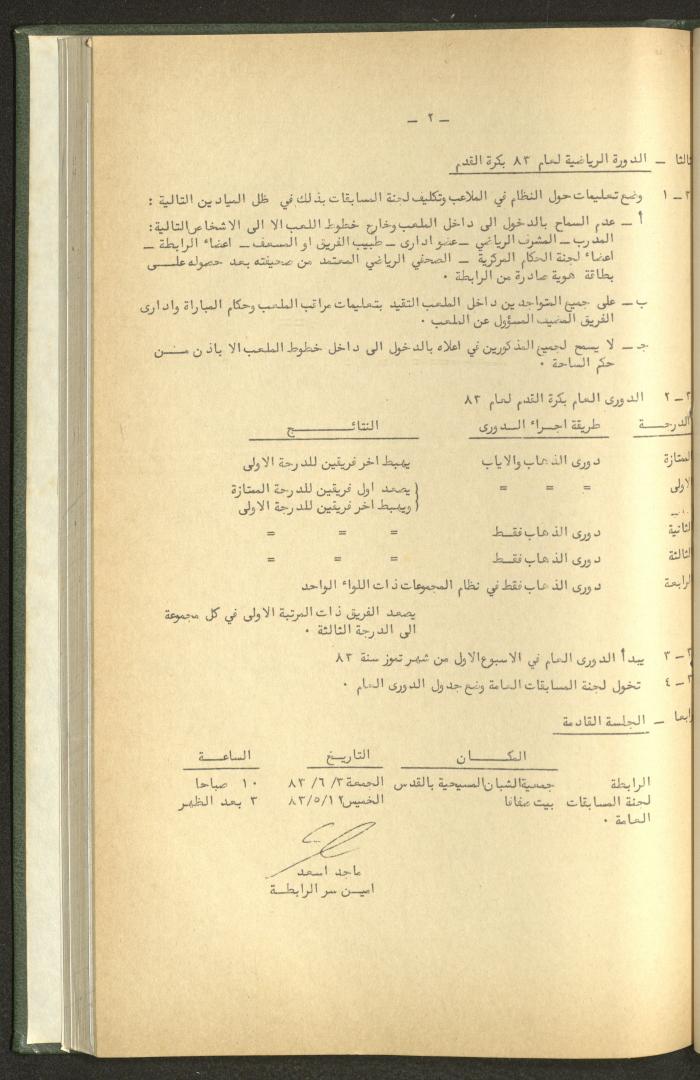 – ٢ –
ثالثا – الدورة الرياضية لعام ٨٣ بكرة القدم
٣ – ١ وضع تعليمات حول النظام في الملاعب وتكليف لجنة المسابقات بذلك في ظل الميادين التالية :
أ – عدم السماح بالدخول الى داخل الملعب وخارج خطوط اللعب الا الى الاشخاص التالية:
المدرب – المشرف الرياضي – عضو ادارى – طبيب الفريق او المسعف – اعضاء الرابطة –
اعضاء لجنة الحكام المركزية – الصحفي الرياضي المعتمد من صحيفته بعد حصوله علـــى
بطاقة هوية صادرة من الرابطة .
ب – على جميع المتواجدين داخل الملعب التقيد بتعليمات مراتب الملعب وحكام المباراة وادارى
الفريق المضيف المسؤول عن الملعب .
جـ – لا يسمح لجميع المذكورين في اعلاه بالدخول الى داخل خطوط الملعب الا باذن مـــن
حكم الساحة .
٣ – ٢ الدورى العام بكرة القدم لعام ٨٣
الدرجـــة طريقة اجراء الـــدورى النتائـــــــج
الممتازة دورى الذهاب والاياب يهبط اخر فريقين للدرجة الاولى
الاولى = = = (يصعد اول فريقين للدرجة الممتازة
(ويهبط اخر فريقين للدرجة الاولى
الثانية دورى الذهاب فقــط = = =
الثالثة دورى الذهاب فقــط = = =
الرابعة دورى الذهاب فقط في نظام المجموعات ذات اللواء الواحد
يصعد الفريق ذات المرتبة الاولى في كل مجموعة
الى الدرجة الثالثة .
٣ – ٣ يبدأ الدورى العام في الاسبوع الاول من شهر تموز سنة ٨٣
٣ – ٤ تخول لجنة المسابقات العامة وضع جدول الدورى العام .
رابعا – الجلسة القادمة
المكـــــان التاريـــخ الساعـــة
الرابطة جمعية الشبان المسيحية بالقدس الجمعة ٣/ ٦/ ٨٣ ١٠ صباحا
لجنة المسابقات بيت صفافا الخميس ٨٣/٥/١٢ ٣ بعد الظهر
العامة .
ماجد اسعد
اميــن سر الرابطــة